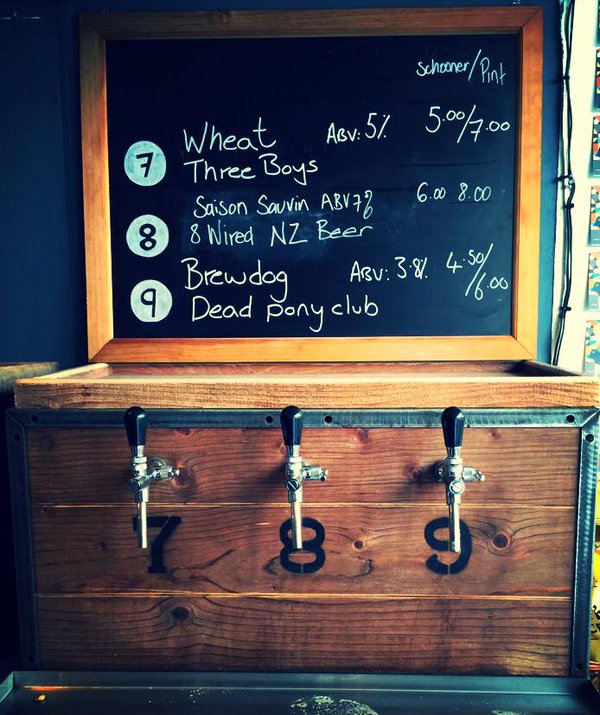 Schooner/Pint
7 Wheat ABV: 5% 5.00/7.00
Three Boys
Saison Sauvin ABV 7% 6.00 8.00
8 8 Wired NZ Beer
Brewdog ABV: 3.8% 4.50/6.00
9 Dead pony club
7 8 9